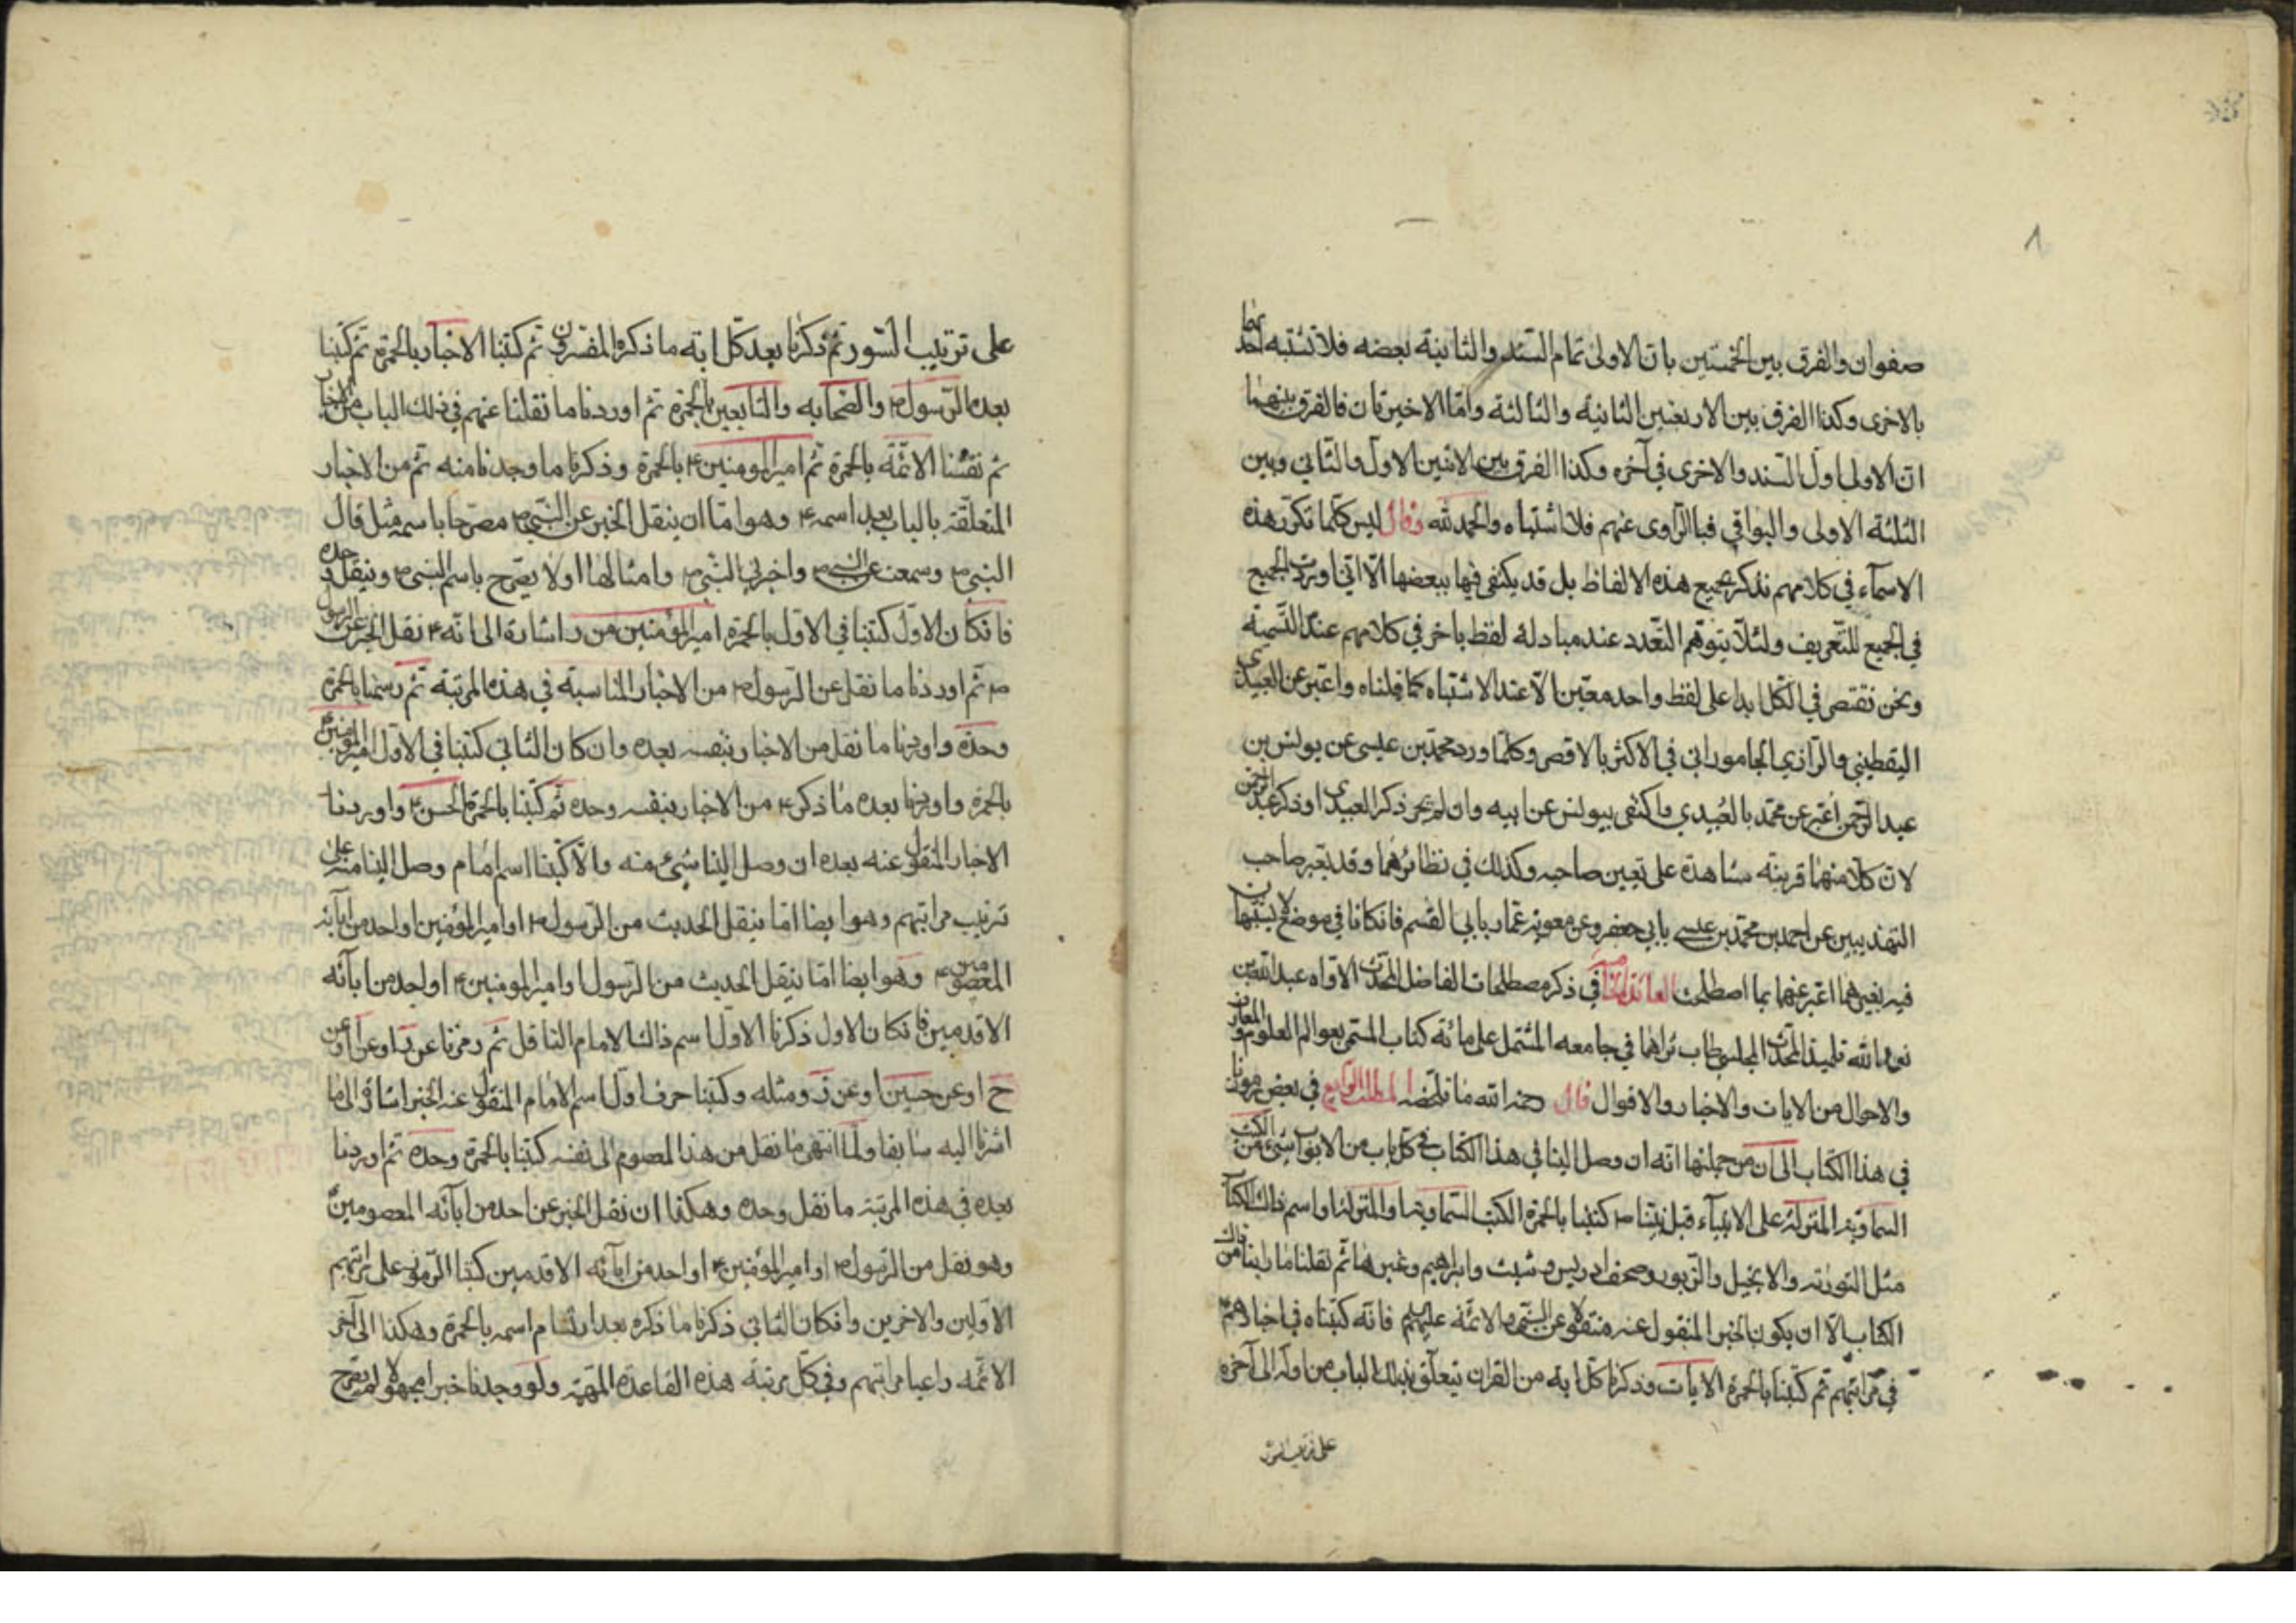 ٨
صفوان والفرق بين الخمستين بان الاولى تمام السند والثانية بعضه فلا تشتبه احدٰهما
بالاخرى وكذا الفرق بين الاربعين الثانية والثالثة واما الاخيرتان فالفرق بينهما
ان الاولى اول السند والاخرى في آخره وكذا الفرق بين الاثنين الاول والثاني وبين
الثلثة الاولى والبواقي فبالراوى عنهم فلا اشتباه والحمد لله وقال ليس كلما تكرر هذه
الاسمآء في كلامهم نذكر جميع هذه الالفاظ بل قد يكتفى فيها ببعضها الا اني اوردت الجميع
في الجميع للتعريف ولئلا يتوهم التعدد عند مبادلة لفظ باخر في كلامهم عند التسمية
ونحن نقتص في الكل ابدا على لفظ واحد معين الا عند الاشتباه كما قلناه واعتبر عن العبيدى
اليقطيني والرازي الجاموراني في الاكثر بالاقصر وكلما ورد محمد بن عيسى عن يونس بن
عبد الرحمن اعتبر عن محمد بالعبيدي واكتفى بيونس عن ابيه وان لم يجر ذكر العبيدى او ذكر عبد الرحمن
لان كلا منهما قرينة مشاهدة على تعيين صاحبه وكذلك في نظائرهما وقد يعبر صاحب
التهذيبين عن احمد بن محمد بن عيسى بابي جعفر وعن معوية بن عمار بابي القسم فان كانا في موضع لا يشتبهان
فيه بغيرهما اعتبر عنهما بما اصطلحت في ذكر مصطلحات الفاضل المحدث الاواه عبد الله بن
نور الله تلميذ المحدث المجلسي طاب ثراهما في جامعه المشتمل على مائة كتاب المسمى بعوالم العلوم والمعارف
والاحوال من الايات والاخبار والاقوال قال رحمه الله ما تلخيصه المطلب الرابع في بعض رموزنا
في هذا الكتاب الى ان من جملتها انه ان وصل الينا في هذا الكتاب في كل باب من الابواب شئ من الكتب
السماوية المنزلة على الانبيآء قبل نبينا ص كتبنا بالحمرة الكتب السماوية والمنزلة واسم ذلك الكتاب
مثل التورٰية والانجيل والزبور وصحف ادريس وشيث وابراهيم وغيرها ثم نقلنا ما راينا من ذلك
الكتاب الا ان يكون الخبر المنقول عنه منقولا عن النبي ص والائمة عليهم فانه كتبناه في اخبارهم
في مراتبهم ثم كتبنا بالحمرة الايات وذكرنا كل اية من القران يتعلق بذلك الباب من اوله الى آخره
على ترتيب السور
على ترتيب السور ثم ذكرنا بعد كل اية ما ذكره المفسرون ثم كتبنا الاخبار بالحمرة ثم كتبنا
بعده الرسول ص والصحابه والتابعين بالحمرة ثم اوردنا ما نقلنا عنهم في ذلك الباب من الاخبار
ثم نقشنا الائمة بالحمرة ثم امير المومنين ع بالحمرة وذكرنا ما وجدنا منه ثم من الاخبار
المتعلقة بالباب بعد اسمه ع وهو اما ان ينقل الخبر عن النبي ص مصرحا باسمه مثل قال
النبي ص وسمعت عن النبي ص واخبرني النبي ص وامثالها او لا يصرح باسم النبي ص وينقل وحده
فان كان الاول كتبنا في الاول بالحمرة امير المؤمنين من ر اشارة الى انه ع نقل الخبر عن الرسول
ص ثم اوردنا ما نقل عن الرسول ص من الاخبار المناسبة في هذه المرتبة ثم رسمنا بالحمرة
وحده واوردنا ما نقل من الاخبار بنفسه بعده وان كان الثاني كتبنا في الاول امير المؤمنين ع
بالحمرة واوردنا بعده ما ذكر ع من الاخبار بنفسه وحده ثم كتبنا بالحمرة الحسن ع واوردنا
الاخبار المنقول عنه بعده ان وصل الينا شئ منه والا كتبنا اسم امام وصل الينا منه على
ترتيب مراتبهم وهو ايضا اما ينقل الحديث من الرسول ص او امير المؤمنين او احد من آبائه
المعصومين ع وهو ايضا اما ينقل الحديث من الرسول او امير المومنين ع او احد من ابآئه
الاقدمين فان كان الاول ذكرنا الاول اسم ذلك الامام الناقل ثم رمزنا عن ر او عن أ او عن
ح او عن حسين او عن ز ومثله وكتبنا حرف اول اسم الامام المنقول عنه الخبر اشارة الى ما
اشرنا اليه سابقا ولما انتهى ما نقل من هذا المعصوم الى نفسه كتبنا بالحمرة وحده ثم اوردنا
بعده في هذه المرتبة ما نقل وحده وهكذا ان نقل الخبر عن احد من ابآئه المعصومين
وهو نقل من الرسول ص او امير المؤمنين ع او احد من ابآئه الاقدمين كتبنا الرموز على مراتبهم
الاولين والاخرين وان كان الثاني ذكرنا ما ذكره بعد ارتسام اسمه بالحمرة وهكذا الى آخر
الائمة راعينا مراتبهم وفي كل مرتبة هذه القاعدة المهمة ولو وجدنا خبرا مجهولا لم يصرح